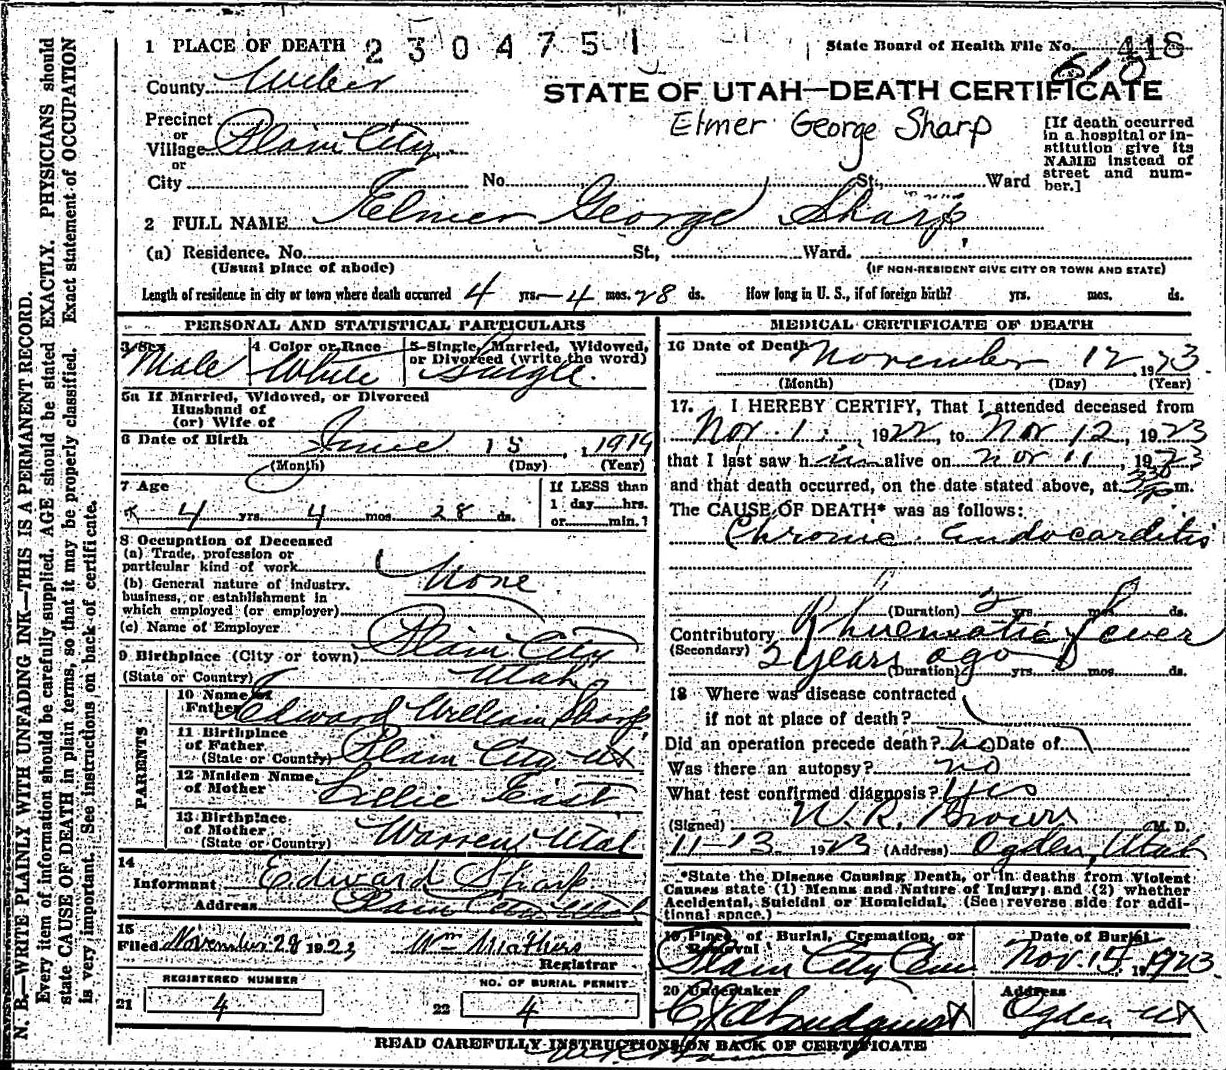 1 PLACE OF DEATH 2304751 State Board of Health File No. 418
610
County Weber
STATE OF UTAH—DEATH CERTIFICATE
Precinct
or
Village Plain City
or
City No. St., Ward
Elmer George Sharp
[If death occurred in a hospital or in-
stitution give its
NAME instead of
street and num-
ber.]
2 FULL NAME Elmer George Sharp
(a) Residence. No. St., Ward.
(Usual place of abode) (IF NON-RESIDENT GIVE CITY OR TOWN AND STATE)
Length of residence in city or town where death occurred 4 yrs.—4 mos. 28 ds. How long in U. S., if of foreign birth? yrs. mos. ds.
PERSONAL AND STATISTICAL PARTICULARS
3 Sex 4 Color or Race 5 Single, Married, Widowed,
or Divorced (write the word)
Male White Single.
5a If Married, Widowed, or Divorced
Husband of
(or) Wife of
6 Date of Birth June 15, 1919
(Month) (Day) (Year)
7 Age If LESS than
1 day hrs.
4 yrs. 4 mos. 28 ds. or min.?
8 Occupation of Deceased
(a) Trade, profession or
particular kind of work None
(b) General nature of industry,
business, or establishment in
which employed (or employer)
(c) Name of Employer
9 Birthplace (City or town) Plain City
(State or Country) Utah
PARENTS
10 Name of
Father Edward William Sharp
11 Birthplace
of Father
(State or Country) Plain City Ut
12 Maiden Name
of Mother Lillie East
13 Birthplace
of Mother
(State or Country) Warren Utah
14
Informant Edward Sharp
Address Plain City Utah
15
Filed November 28 1923 Wm Mathers
Registrar
REGISTERED NUMBER NO. OF BURIAL PERMIT
21 4 22 4
MEDICAL CERTIFICATE OF DEATH
16 Date of Death November 12, 1923
(Month) (Day) (Year)
17. I HEREBY CERTIFY, That I attended deceased from
Nov. 1, 1922, to Nov 12, 1923
that I last saw him alive on Nov 11, 1923
and that death occurred, on the date stated above, at 330 pm.
The CAUSE OF DEATH* was as follows:
Chronic Endocarditis
(Duration) 2 yrs. mos. ds.
Contributory Rhuematic fever
(Secondary) 2 years ago
(Duration) yrs. mos. ds.
18 Where was disease contracted
if not at place of death?
Did an operation precede death? no Date of
Was there an autopsy? no
What test confirmed diagnosis? yes
(Signed) W. R. Brown M. D.
11-13 1923 (Address) Ogden, Utah
*State the Disease Causing Death, or in deaths from Violent
Causes state (1) Means and Nature of Injury; and (2) whether
Accidental, Suicidal or Homicidal. (See reverse side for addi-
tional space.)
19 Place of Burial, Cremation, or
Removal Date of Burial
Plain City Cem Nov. 15, 1923
20 Undertaker Address
Ogden Ut
READ CAREFULLY INSTRUCTIONS ON BACK OF CERTIFICATE
N. B.—WRITE PLAINLY WITH UNFADING INK—THIS IS A PERMANENT RECORD.
Every item of information should be carefully supplied. AGE should be stated EXACTLY. PHYSICIANS should
state CAUSE OF DEATH in plain terms, so that it may be properly classified. Exact statement of OCCUPATION
is very important. See instructions on back of certificate.